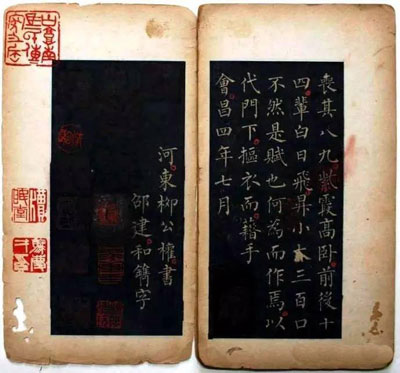 喪其八九紫霞高卧前從十
四輩白日飛昇小大三百口
不然是賦也何為而作焉以
代門下摳衣而籍手
會昌四年七月
河東柳公權書
邵建和鐫字